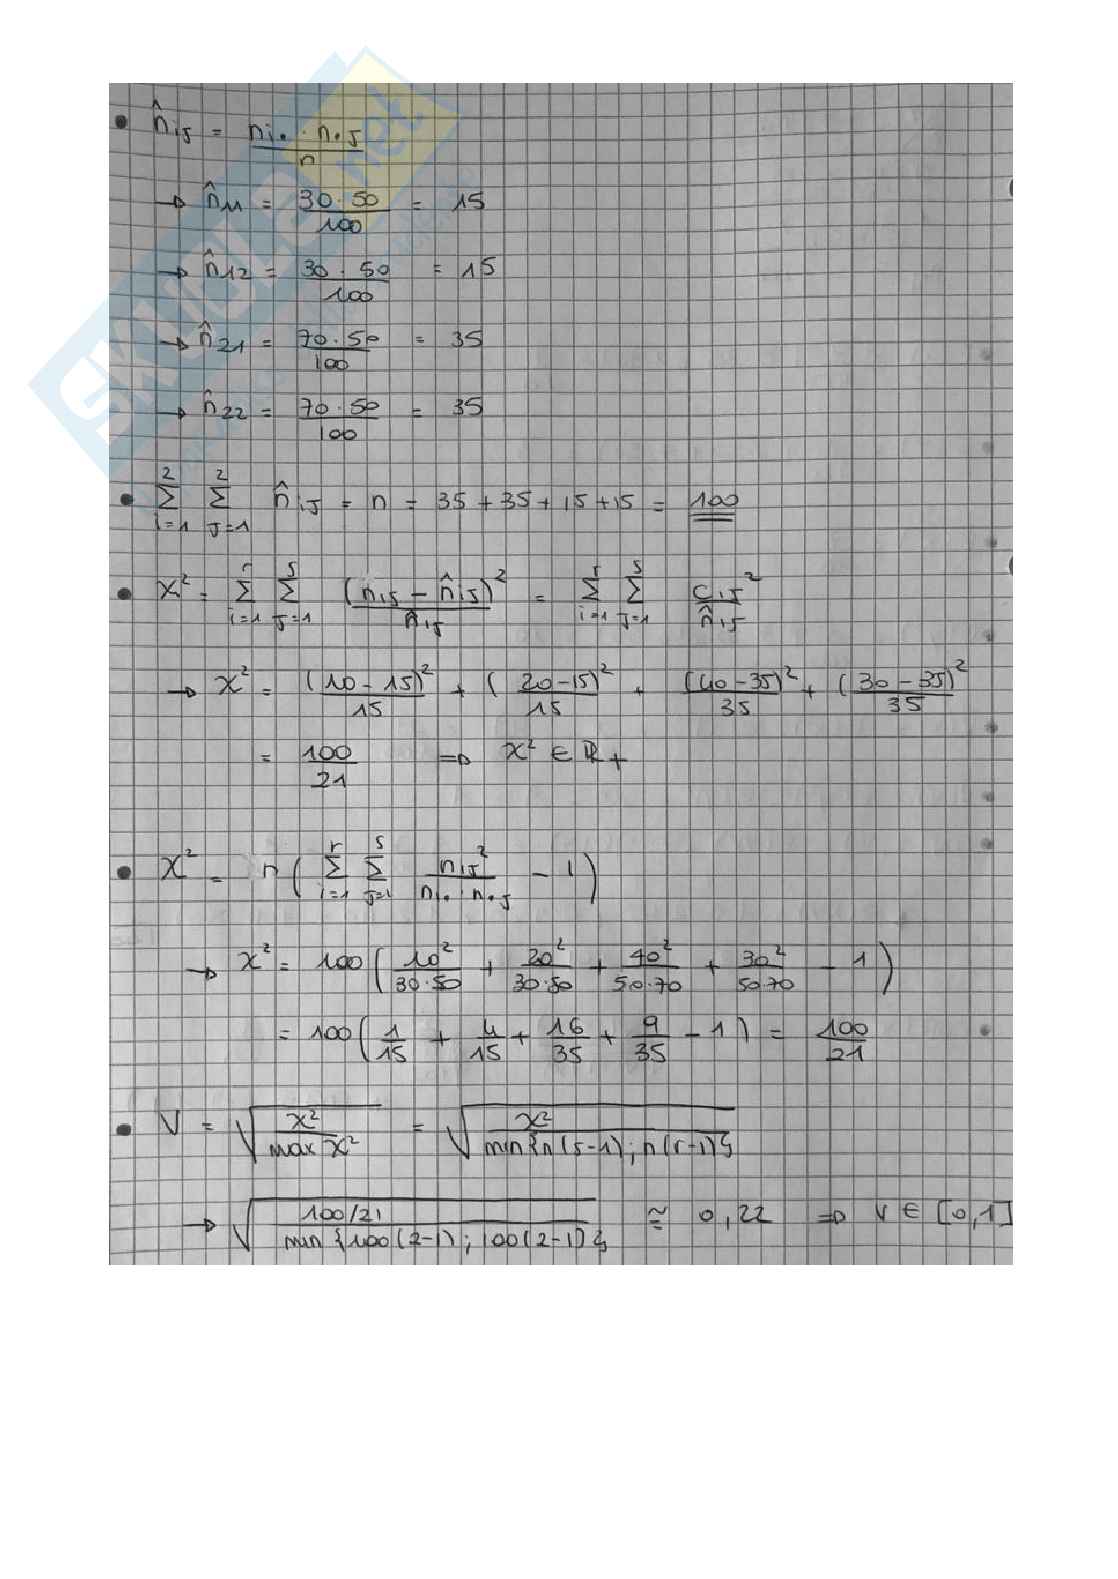 • n̂ij = ni• · n•j / n
→ n̂11 = 30·50 / 100 = 15
→ n̂12 = 30 · 50 / 100 = 15
→ n̂21 = 70·50 / 100 = 35
→ n̂22 = 70·50 / 100 = 35
• Σ(i=1, 2) Σ(J=1, 2) n̂ij = n = 35 + 35 + 15 + 15 = 100
• χ² = Σ(i=1, r) Σ(J=1, s) (nij − n̂ij)² / n̂ij = Σ(i=1, r) Σ(J=1, s) Cij² / n̂ij
→ χ² = (10 − 15)² / 15 + (20 − 15)² / 15 + (40 − 35)² / 35 + (30 − 35)² / 35
= 100 / 21 ⇒ χ² ∈ ℝ+
• χ² = n ( Σ(i=1, r) Σ(J=1, s) nij² / ni• · n•j − 1 )
→ χ² = 100 ( 10² / 30·50 + 20² / 30·50 + 40² / 50·70 + 30² / 50·70 − 1 )
= 100 ( 1/15 + 4/15 + 16/35 + 9/35 − 1 ) = 100 / 21
• V = √( χ² / max χ² ) = √( χ² / min{n(s−1); n(r−1)} )
→ √( 100/21 / min {100(2−1); 100(2−1)} ) ≅ 0,22 ⇒ V ∈ [0,1]
SKUOLA.net